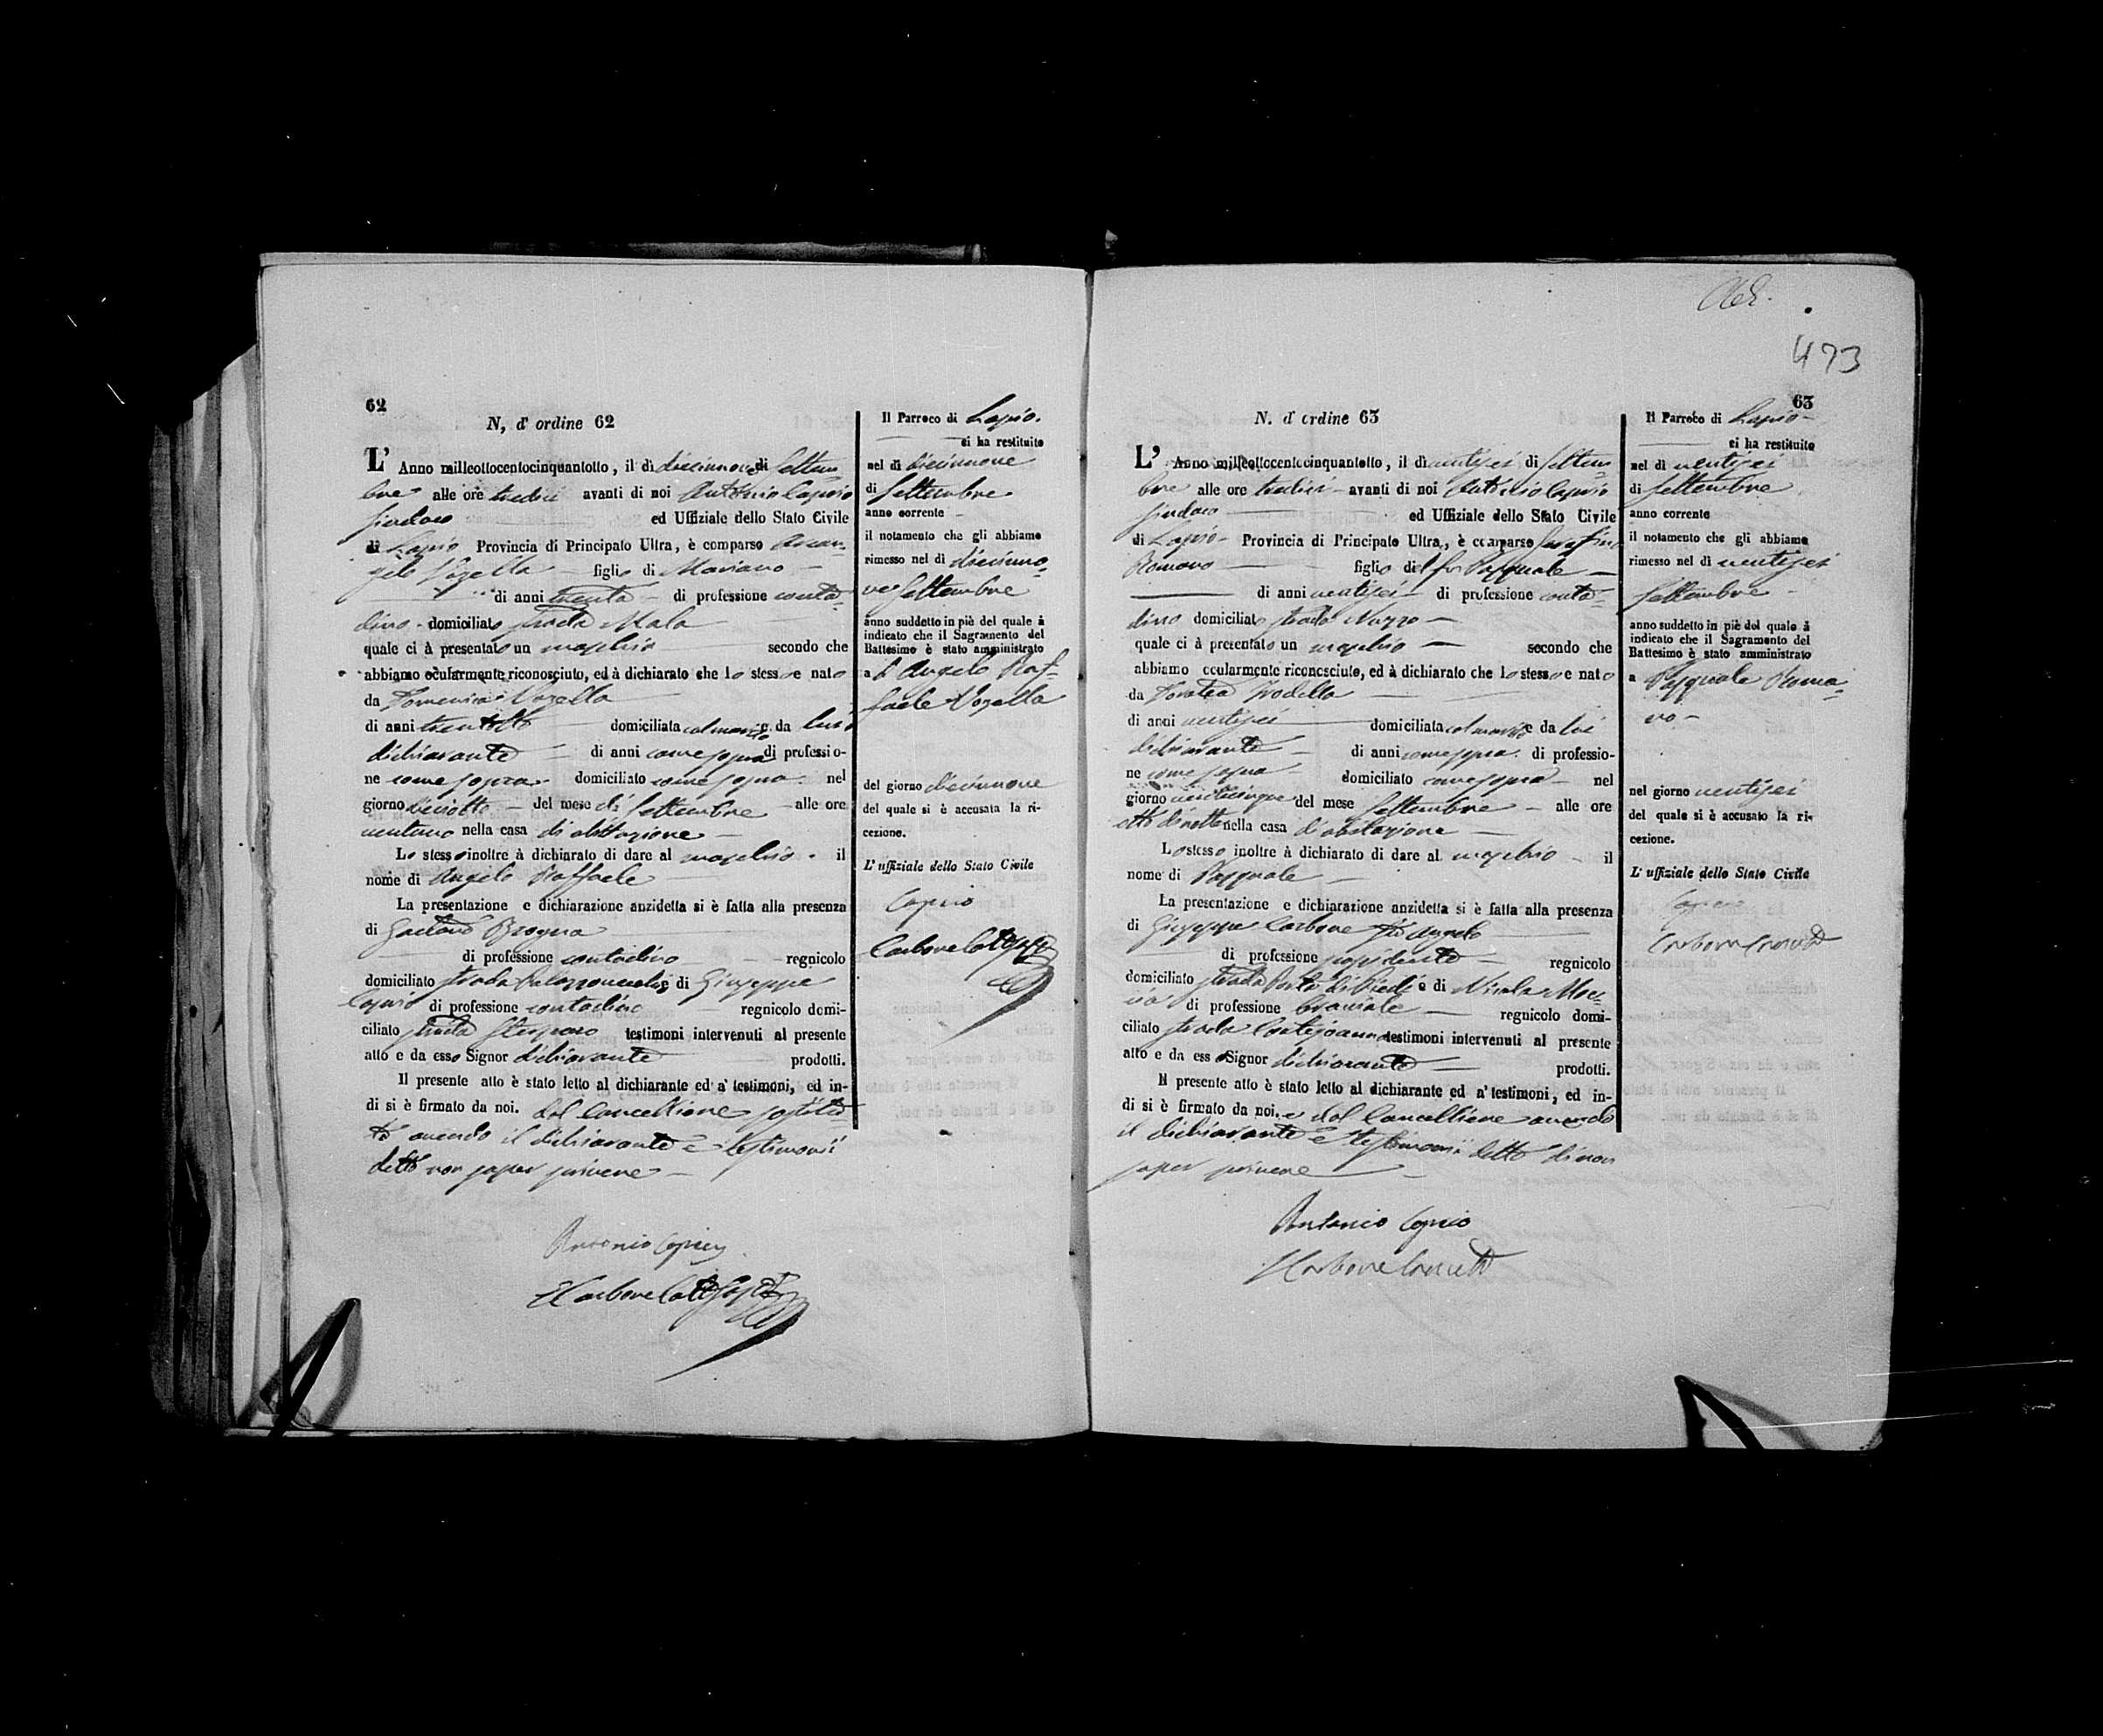 62
N, d' ordine 62
L' Anno milleottocentocinquantotto, il dì diecinnove di Settem
bre alle ore tredici avanti di noi Antonio Caprio
Sindaco ed Uffiziale dello Stato Civile
di Lapio Provincia di Principato Ultra, è comparso Arcan-
gelo Vozella figlio di Mariano
di anni trenta di professione conta-
dino domiciliato strada Mala
quale ci à presentato un maschio secondo che
abbiamo ocularmente riconosciuto, ed à dichiarato che lo stesso e nato
da Domenica Vozella
di anni trentotto domiciliata col marito e da lui
dichiarante di anni come sopra di professio-
ne come sopra domiciliato come sopra nel
giorno dieciotto del mese di Settembre alle ore
ventuno nella casa di abitazione
Lo stesso inoltre à dichiarato di dare al maschio il
nome di Angelo Raffaele
La presentazione e dichiarazione anzidetta si è fatta alla presenza
di Gaetano Brogna
di professione contadino regnicolo
domiciliato strada e di Giuseppe
Caprio di professione contadino regnicolo domi-
ciliato strada testimoni intervenuti al presente
atto e da esso Signor dichiarante prodotti.
Il presente atto è stato letto al dichiarante ed a' testimoni, ed in-
di si è firmato da noi. dal Cancelliere sostitu-
to avendo il dichiarante e testimonii
detto non saper scrivere
Antonio Caprio
Carbone
Il Parroco di Lapio.
ci ha restituito
nel dì diecinnove
di Settembre
anno corrente
il notamento che gli abbiamo
rimesso nel dì diecinno-
ve Settembre
anno suddetto in piè del quale à
indicato che il Sagramento del
Battesimo è stato amministrato
a Angelo Raf-
faele Vozella
del giorno diecinnove
del quale si è accusata la ri-
cezione.
L' uffiziale dello Stato Civile
Caprio
Carbone
473
63
N. d' ordine 63
L' Anno milleottocentocinquantotto, il dì ventisei di Settem
bre alle ore tredici avanti di noi Antonio Caprio
Sindaco ed Uffiziale dello Stato Civile
di Lapio Provincia di Principato Ultra, è comparso Serafino
Romano figlio del fu Pasquale
di anni ventisei di professione conta-
dino domiciliato strada Nuzzo
quale ci à presentato un maschio secondo che
abbiamo ocularmente riconosciuto, ed à dichiarato che lo stesso e nato
da Donata Irodella
di anni ventisei domiciliata col marito e da lui
dichiarante di anni come sopra di professio-
ne come sopra domiciliato come sopra nel
giorno venticinque del mese Settembre alle ore
otto di notte nella casa di abitazione
Lo stesso inoltre à dichiarato di dare al maschio il
nome di Pasquale
La presentazione e dichiarazione anzidetta si è fatta alla presenza
di Giuseppe Carbone Angelo
di professione possidente regnicolo
domiciliato strada Porta di Piedi e di Nicola
di professione bracciale regnicolo domi-
ciliato strada testimoni intervenuti al presente
atto e da esso Signor dichiarante prodotti.
Il presente atto è stato letto al dichiarante ed a' testimoni, ed in-
di si è firmato da noi. e dal Cancelliere avendo
il dichiarante e testimonii detto di non
saper scrivere
Antonio Caprio
Carbone
Il Parroco di Lapio
ci ha restituito
nel dì ventisei
di Settembre
anno corrente
il notamento che gli abbiamo
rimesso nel dì ventisei
Settembre
anno suddetto in piè del quale à
indicato che il Sagramento del
Battesimo è stato amministrato
a Pasquale Roma-
no
nel giorno ventisei
del quale si è accusato la ri-
cezione.
L' uffiziale dello Stato Civile
Caprio
Carbone